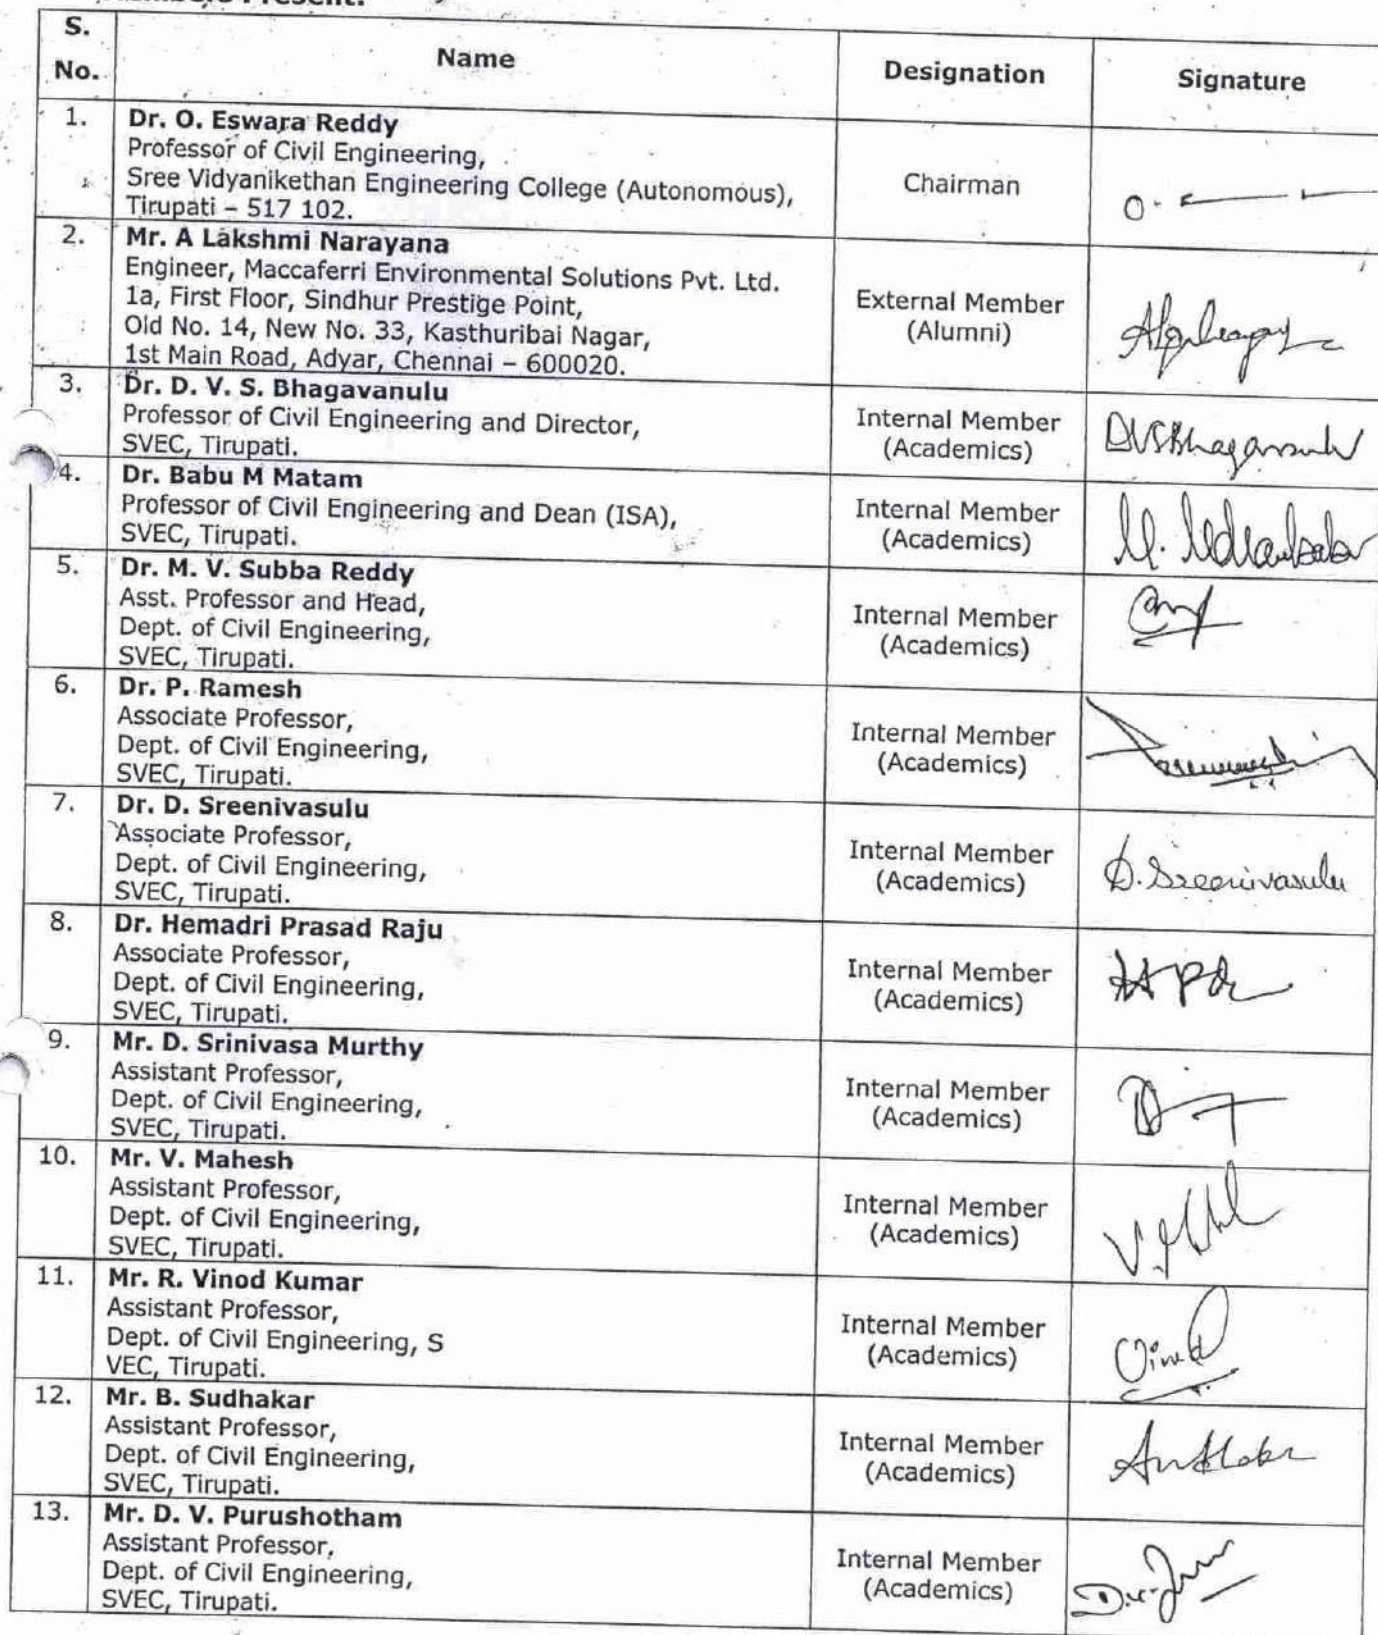 Members Present:
S. No.
Name
Designation
Signature
1.
Dr. O. Eswara Reddy
Professor of Civil Engineering,
Sree Vidyanikethan Engineering College (Autonomous),
Tirupati – 517 102.
Chairman
2.
Mr. A Lakshmi Narayana
Engineer, Maccaferri Environmental Solutions Pvt. Ltd.
1a, First Floor, Sindhur Prestige Point,
Old No. 14, New No. 33, Kasthuribai Nagar,
1st Main Road, Adyar, Chennai – 600020.
External Member
(Alumni)
3.
Dr. D. V. S. Bhagavanulu
Professor of Civil Engineering and Director,
SVEC, Tirupati.
Internal Member
(Academics)
4.
Dr. Babu M Matam
Professor of Civil Engineering and Dean (ISA),
SVEC, Tirupati.
Internal Member
(Academics)
5.
Dr. M. V. Subba Reddy
Asst. Professor and Head,
Dept. of Civil Engineering,
SVEC, Tirupati.
Internal Member
(Academics)
6.
Dr. P. Ramesh
Associate Professor,
Dept. of Civil Engineering,
SVEC, Tirupati.
Internal Member
(Academics)
7.
Dr. D. Sreenivasulu
Associate Professor,
Dept. of Civil Engineering,
SVEC, Tirupati.
Internal Member
(Academics)
D. Sreenivasulu
8.
Dr. Hemadri Prasad Raju
Associate Professor,
Dept. of Civil Engineering,
SVEC, Tirupati.
Internal Member
(Academics)
9.
Mr. D. Srinivasa Murthy
Assistant Professor,
Dept. of Civil Engineering,
SVEC, Tirupati.
Internal Member
(Academics)
10.
Mr. V. Mahesh
Assistant Professor,
Dept. of Civil Engineering,
SVEC, Tirupati.
Internal Member
(Academics)
11.
Mr. R. Vinod Kumar
Assistant Professor,
Dept. of Civil Engineering, S
VEC, Tirupati.
Internal Member
(Academics)
12.
Mr. B. Sudhakar
Assistant Professor,
Dept. of Civil Engineering,
SVEC, Tirupati.
Internal Member
(Academics)
13.
Mr. D. V. Purushotham
Assistant Professor,
Dept. of Civil Engineering,
SVEC, Tirupati.
Internal Member
(Academics)